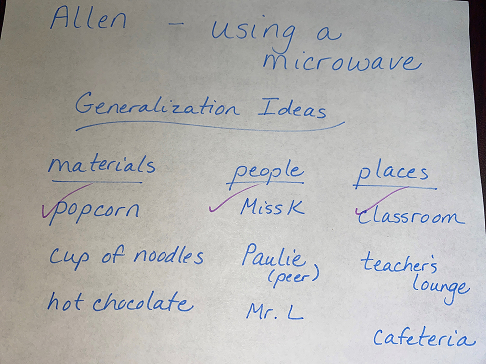 Allen - using a
microwave
Generalization Ideas
materials people places
popcorn Miss K classroom
cup of noodles Paulie teacher's
(peer) lounge
hot chocolate Mr. L
cafeteria